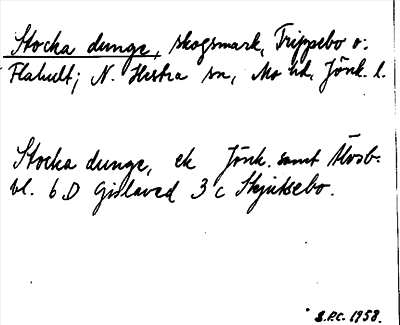 Stocka dunge, skogsmark, Trippebo o.
Flahult; N. Hestra sn, Mo hd, Jönk. l.
Stocka dunge, ek Jönk. samt Älvsb.
bl. 6 D Gislaved 3 c Skjutsebo.
S.P.C. 1958.